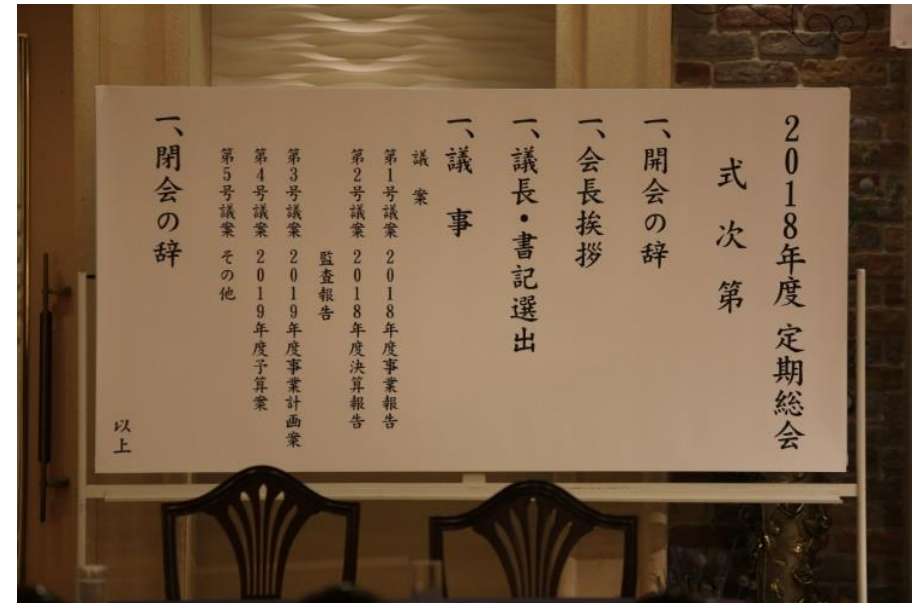 2018年度 定期総会
式次第
一、開会の辞
一、会長挨拶
一、議長・書記選出
一、議事
議案
第1号議案 2018年度事業報告
第2号議案 2018年度決算報告
監査報告
第3号議案 2019年度事業計画案
第4号議案 2019年度予算案
第5号議案 その他
一、閉会の辞
以上